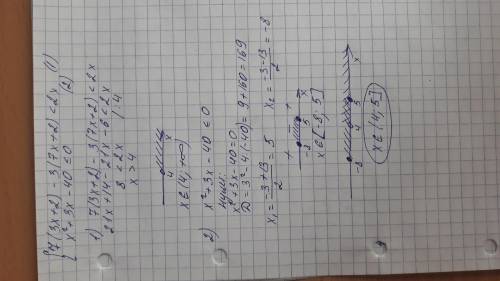 { 7(3x+2) - 3(7x+2) < 2x (1)
x² + 3x - 40 ≤ 0 (2)
1) 7(3x+2) - 3(7x+2) < 2x
21x + 14 - 21x - 6 < 2x
8 < 2x | : 4
x > 4
4 x
x ∈ (4, +∞)
2) x² + 3x - 40 ≤ 0
нули:
x² + 3x - 40 = 0
D = 3² - 4·(-40) = 9 + 160 = 169
x₁ = (-3+13)/2 = 5 x₂ = (-3-13)/2 = -8
+ - +
-8 5 x
x ∈ [-8, 5]
-8 4 5 x
x ∈ (4, 5]